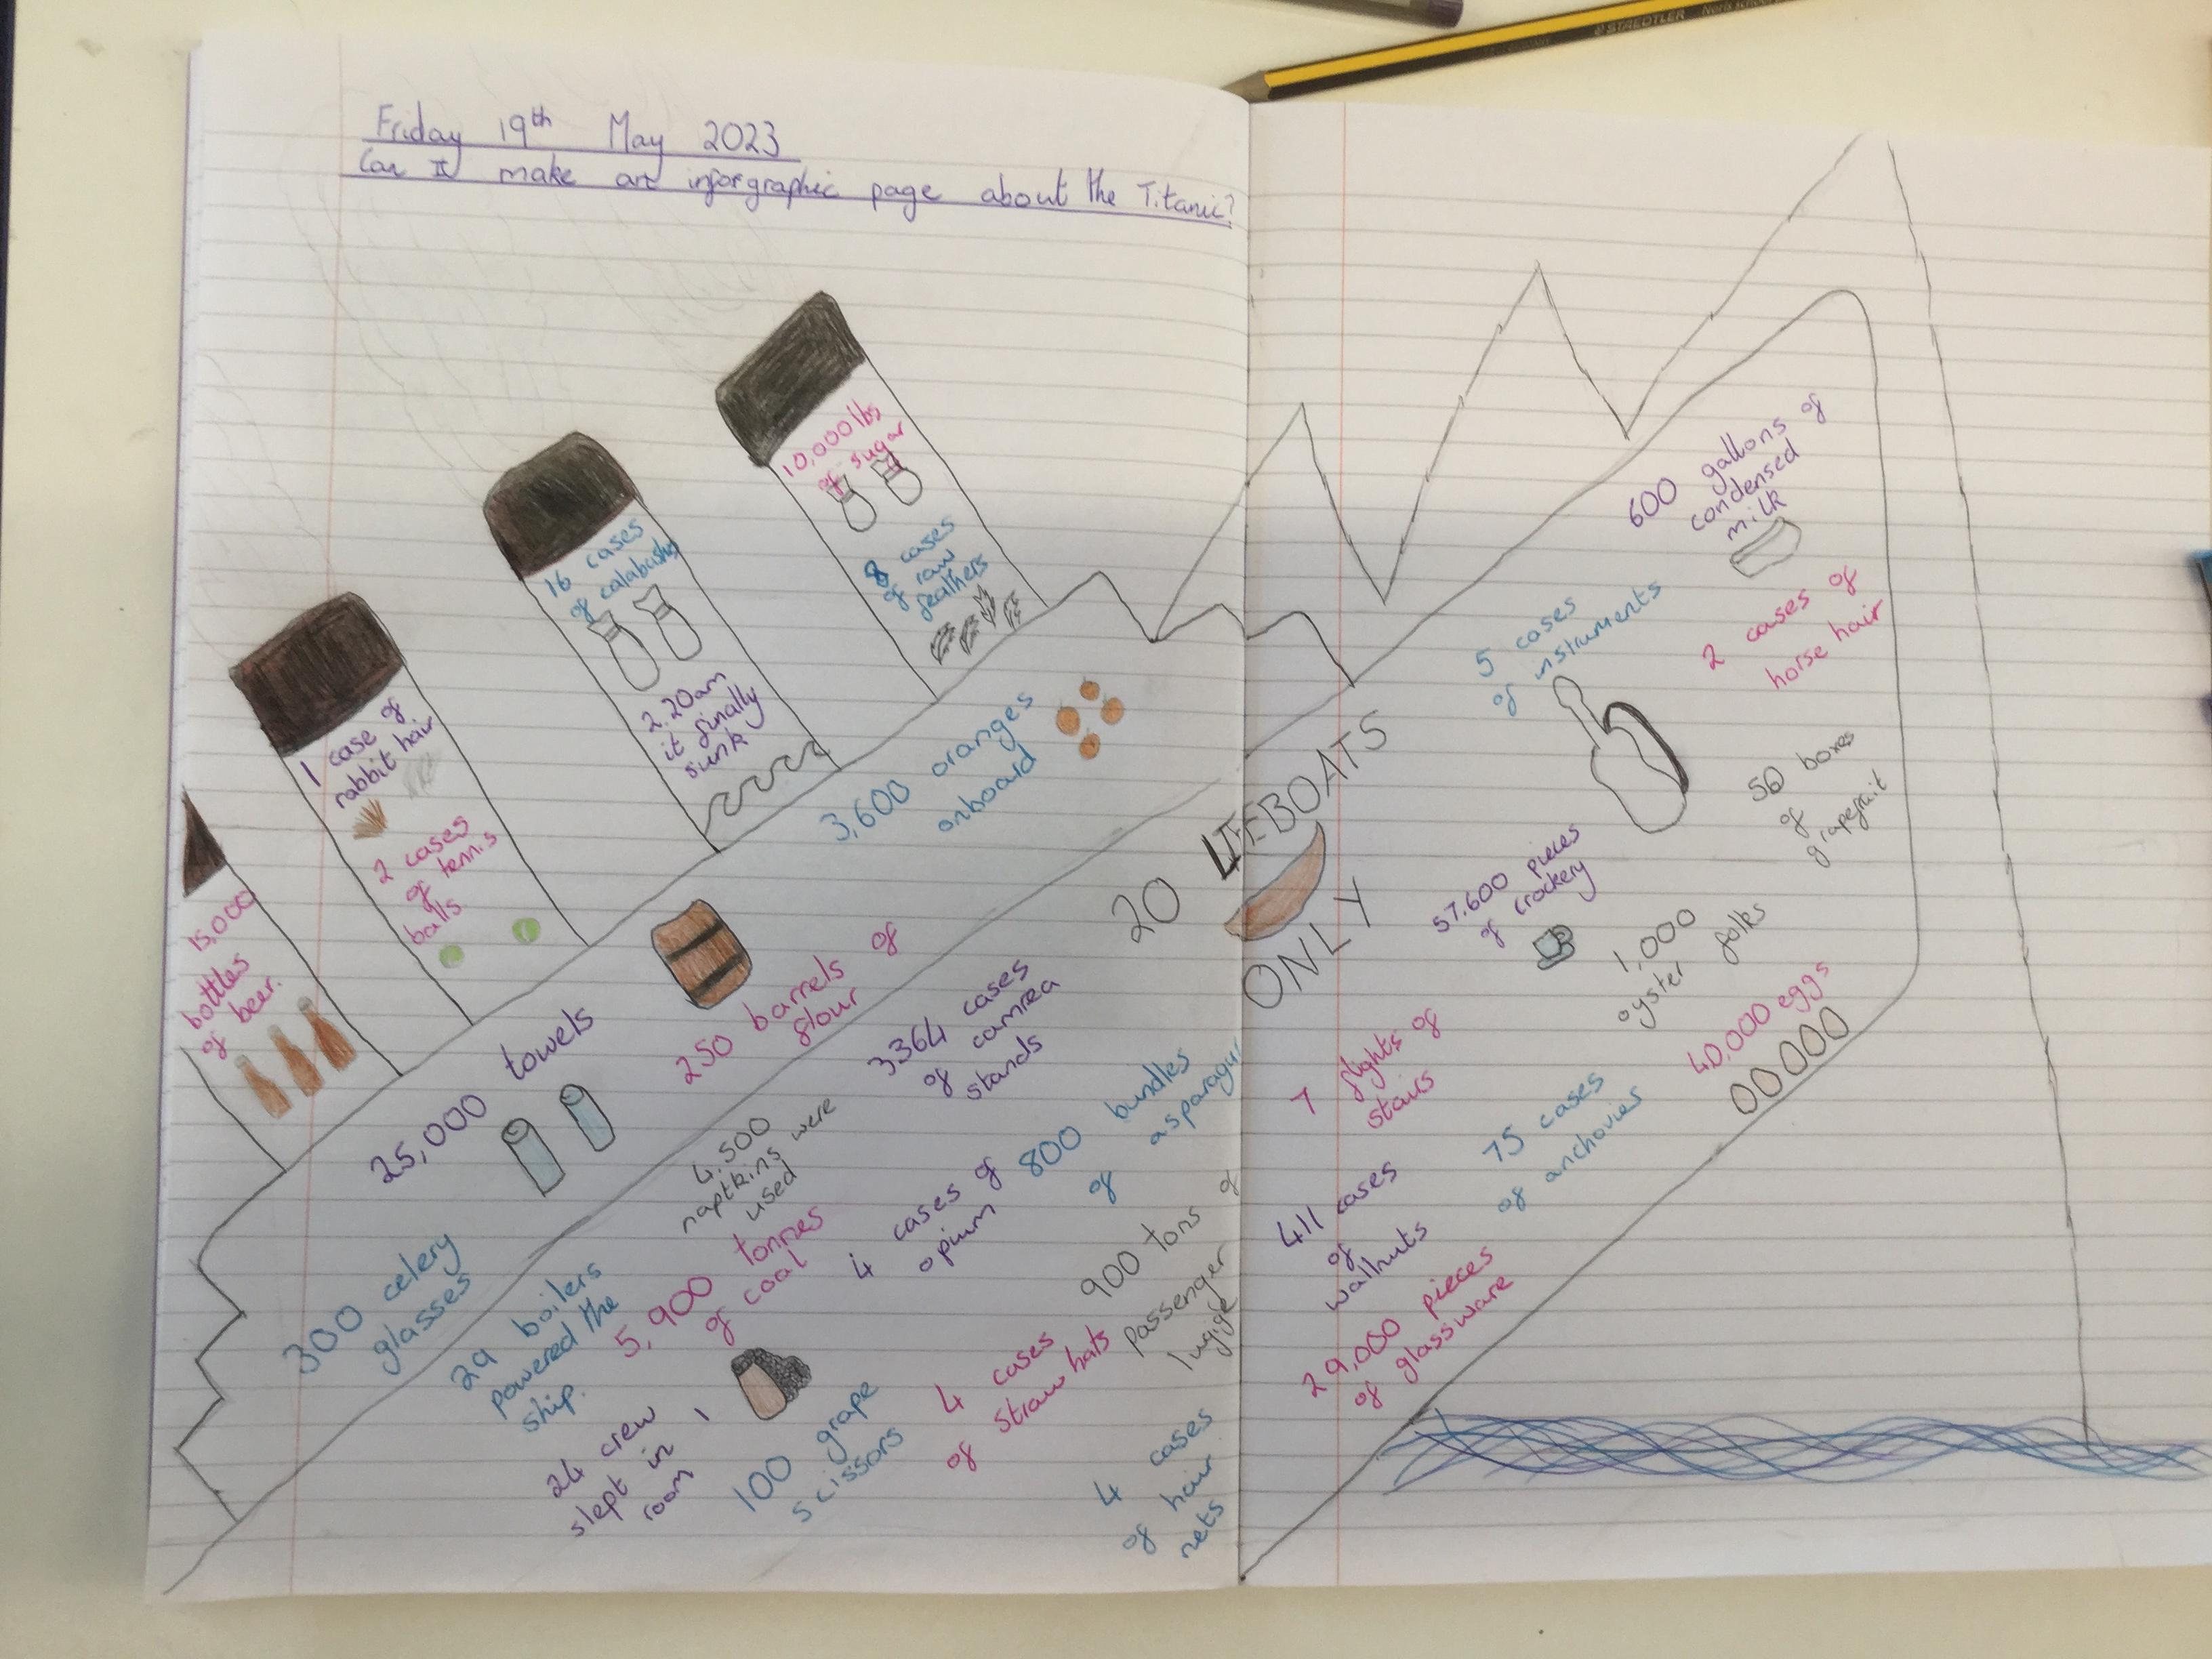 STAEDTLER Noris
Friday 19th May 2023
Can I make an inforgraphic page about the Titanic?
10,000 lbs
of sugar
8 cases
of raw
feathers
16 cases
of calabashes
2.20am
it finally
sunk
1 case of
rabbit hair
2 cases
of tennis
balls
15,000
bottles
of beer.
3,600 oranges
onboard
25,000 towels
250 barrels of
flour
20 LIFEBOATS
ONLY
300 celery
glasses
29 boilers
powered the
ship.
4,500
naptkins were
used
3364 cases
of camrea
stands
5,900 tonnes
of coal
4 cases of
opium
800 bundles
of asparagus
24 crew
slept in 1
room
100 grape
scissors
4 cases
of straw hats
900 tons of
passenger
lugige
4 cases
of hair
nets
600 gallons of
condensed
milk
5 cases
of instruments
2 cases of
horse hair
50 boxes
of
grapefruit
57,600 pieces
of crockery
1,000
oyster folks
40,000 eggs
7 flights of
stairs
75 cases
of anchovies
411 cases
of
wallnuts
29,000 pieces
of glassware